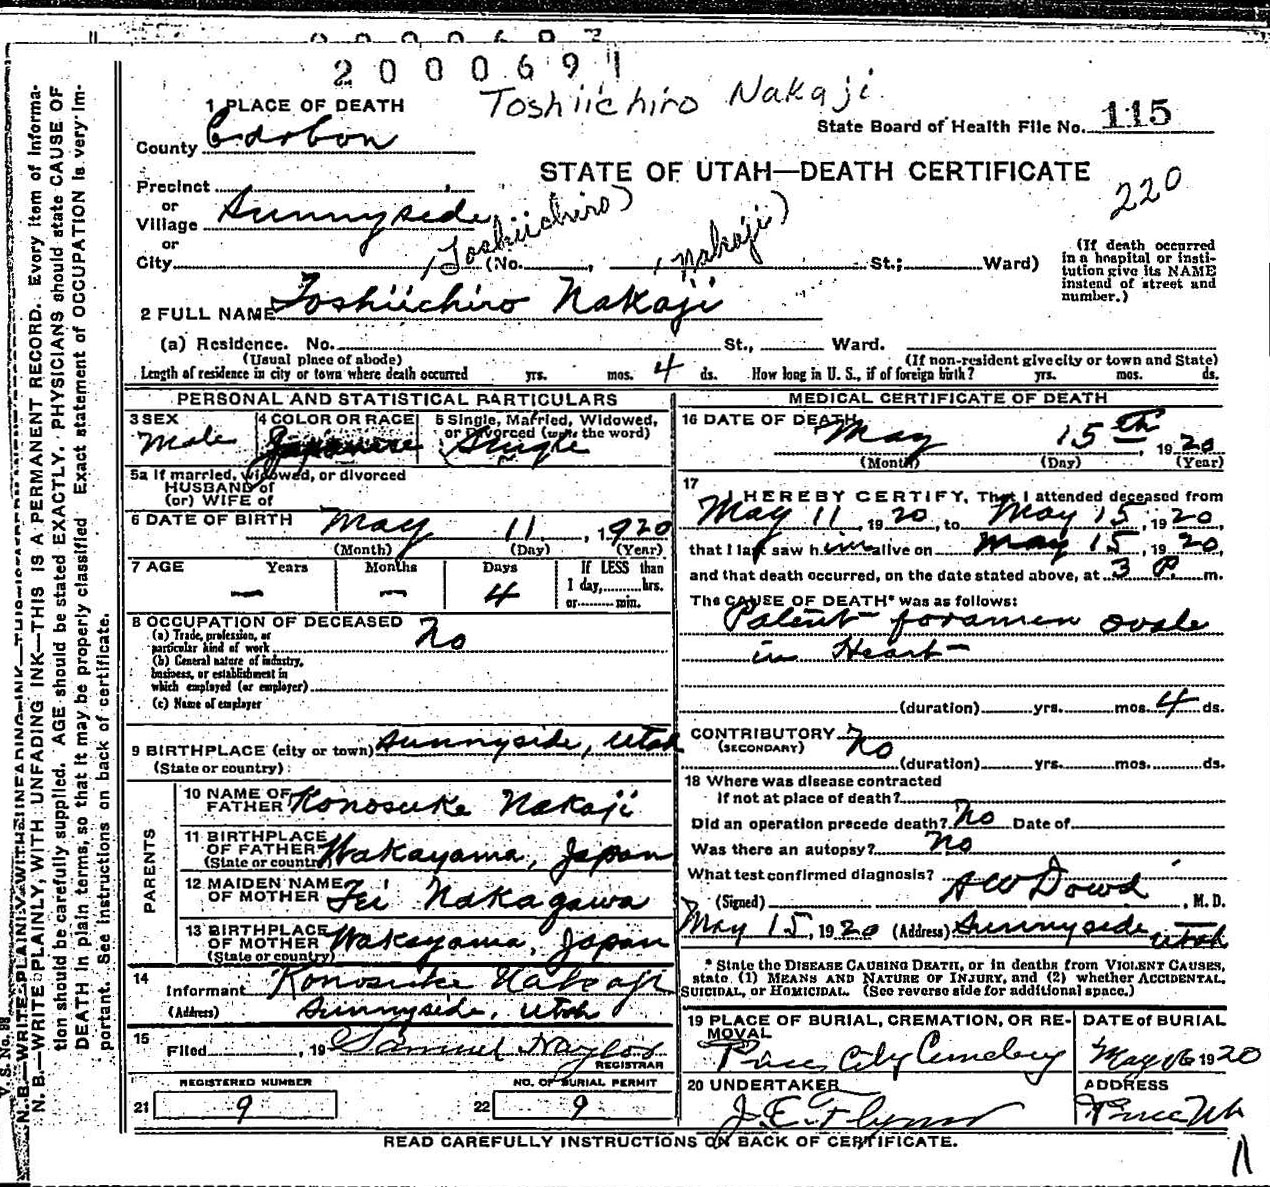 2000691
Toshiichiro Nakaji
1 PLACE OF DEATH
County Carbon
State Board of Health File No. 115
STATE OF UTAH—DEATH CERTIFICATE
220
Precinct
or
Village Sunnyside
or
City (No. , St.; Ward)
(Toshiichiro) (Nakaji)
(If death occurred
in a hospital or insti-
tution give its NAME
instead of street and
number.)
2 FULL NAME Toshiichiro Nakaji
(a) Residence. No. St., Ward.
(Usual place of abode) (If non-resident give city or town and State)
Length of residence in city or town where death occurred yrs. mos. 4 ds. How long in U. S., if of foreign birth? yrs. mos. ds.
PERSONAL AND STATISTICAL PARTICULARS
3 SEX
Male
4 COLOR OR RACE
Japanese
5 Single, Married, Widowed,
or Divorced (write the word)
Single
5a If married, widowed, or divorced
HUSBAND of
(or) WIFE of
6 DATE OF BIRTH May 11, 1920
(Month) (Day) (Year)
7 AGE Years Months Days If LESS than
1 day, hrs.
or min.
— — 4
8 OCCUPATION OF DECEASED
(a) Trade, profession, or
particular kind of work No
(b) General nature of industry,
business, or establishment in
which employed (or employer)
(c) Name of employer
9 BIRTHPLACE (city or town) Sunnyside, Utah
(State or country)
PARENTS
10 NAME OF
FATHER Konosuke Nakaji
11 BIRTHPLACE
OF FATHER
(State or country) Wakayama, Japan
12 MAIDEN NAME
OF MOTHER Tei Nakagawa
13 BIRTHPLACE
OF MOTHER
(State or country) Wakayama, Japan
14
Informant Konosuke Nakaji
(Address) Sunnyside, Utah
15
Filed , 19 Samuel Naylor
REGISTRAR
REGISTERED NUMBER
21 9
NO. OF BURIAL PERMIT
22 9
MEDICAL CERTIFICATE OF DEATH
16 DATE OF DEATH
May 15th, 1920
(Month) (Day) (Year)
17
I HEREBY CERTIFY, That I attended deceased from
May 11, 1920, to May 15, 1920,
that I last saw him alive on May 15, 1920,
and that death occurred, on the date stated above, at 3 P. m.
The CAUSE OF DEATH* was as follows:
Patent foramen ovale
in Heart—
(duration) yrs. mos. 4 ds.
CONTRIBUTORY
(SECONDARY) No
(duration) yrs. mos. ds.
18 Where was disease contracted
if not at place of death?
Did an operation precede death? No Date of
Was there an autopsy? No
What test confirmed diagnosis?
(Signed) A W Dowd, M. D.
May 15, 1920 (Address) Sunnyside Utah
* State the DISEASE CAUSING DEATH, or in deaths from VIOLENT CAUSES,
state (1) MEANS AND NATURE OF INJURY, and (2) whether ACCIDENTAL,
SUICIDAL, or HOMICIDAL. (See reverse side for additional space.)
19 PLACE OF BURIAL, CREMATION, OR RE-
MOVAL
Price City Cemetery
DATE of BURIAL
May 16 1920
20 UNDERTAKER
J. E. Flynn
ADDRESS
Price Ut
READ CAREFULLY INSTRUCTIONS ON BACK OF CERTIFICATE.
V. S. No. 98
N. B.—WRITE PLAINLY, WITH UNFADING INK—THIS IS A PERMANENT RECORD. Every item of informa-
tion should be carefully supplied. AGE should be stated EXACTLY. PHYSICIANS should state CAUSE OF
DEATH in plain terms, so that it may be properly classified. Exact statement of OCCUPATION is very im-
portant. See instructions on back of certificate.